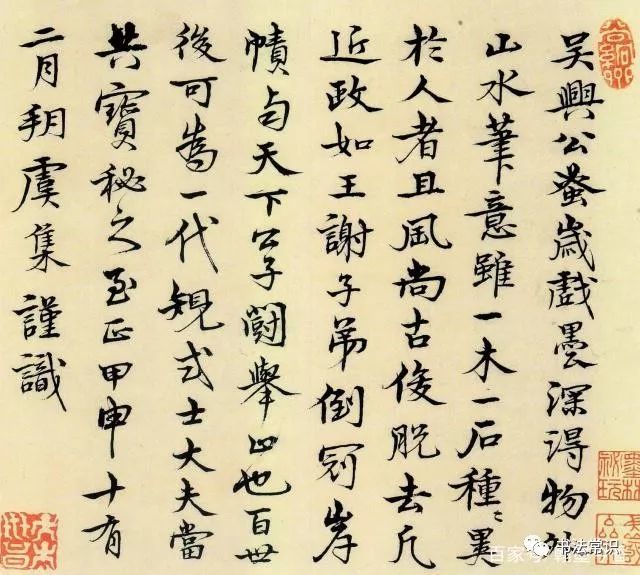 吳興公蚤歲戲墨深得物外
山水筆意雖一木一石種〻異
於人者且風尚古俊脫去凡
近政如王謝子弟倒冠岸
幘与天下公子鬪舉止也百世
後可為一代規式士大夫當
共寶秘之至正甲申十有
二月朔虞集謹識
墨林
秘玩
书法常识
百家号